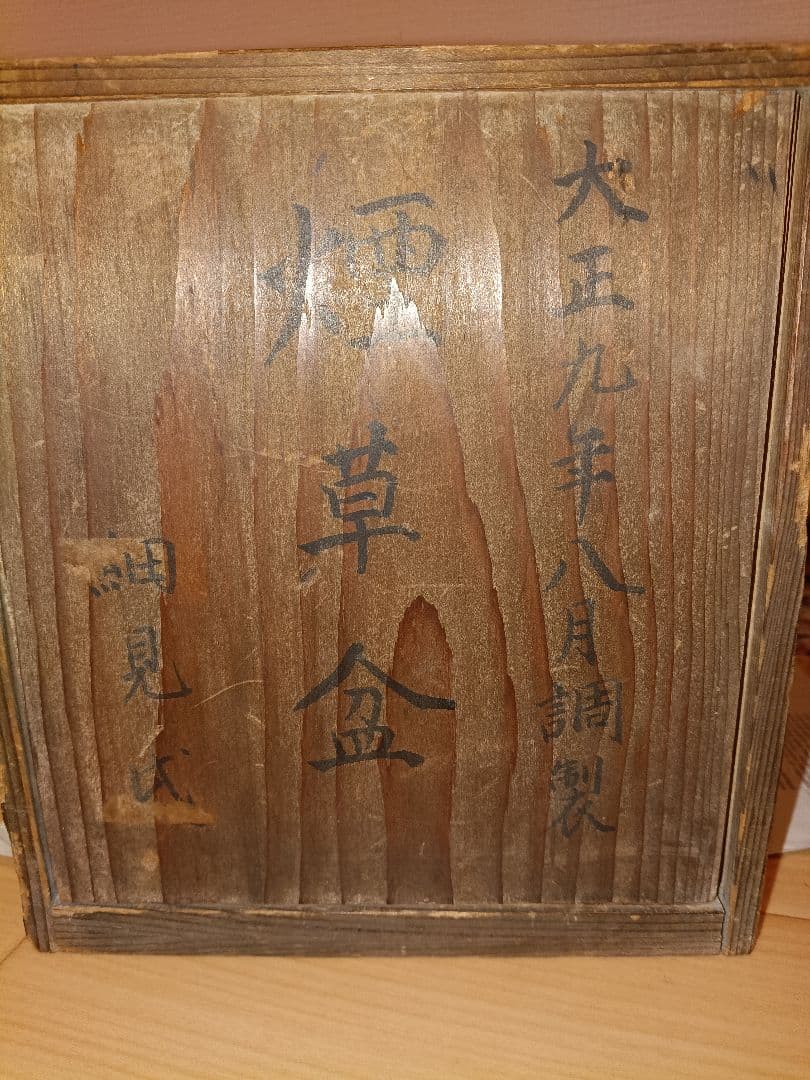 大正九年八月調製
煙草盆
細見氏